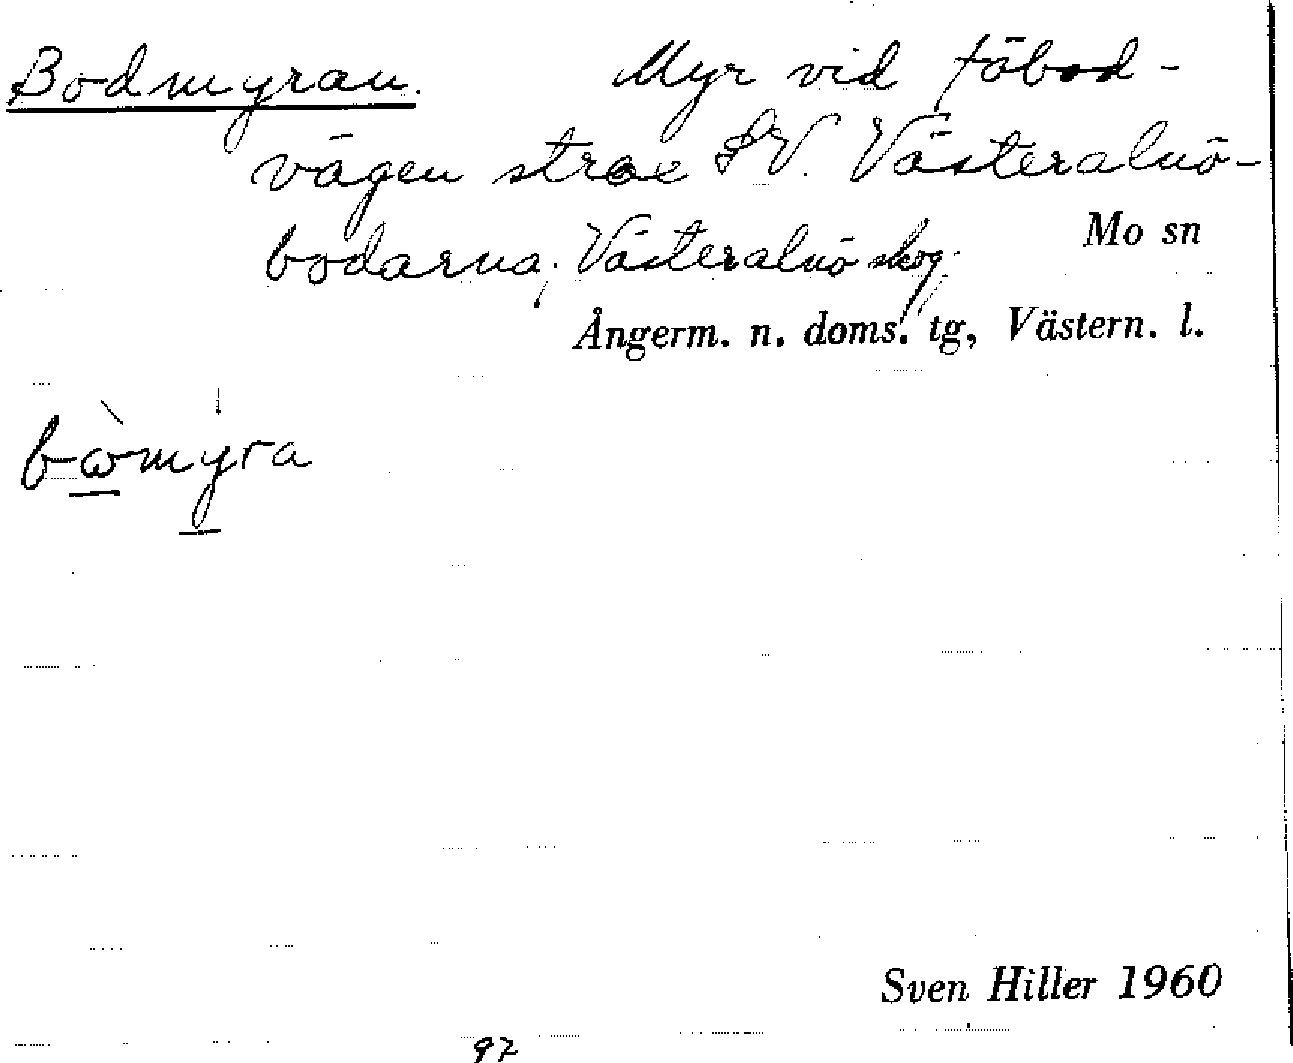 Bodmyran. Myr vid fäbod-
vägen strax SV. Västeralnö-
bodarna; Västeralnö skog.
Mo sn
Ångerm. n. doms. tg, Västern. l.
bὼmyra
Sven Hiller 1960
97